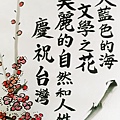 大藍色的海
文學之花
美麗的自然和人性
慶祝台灣